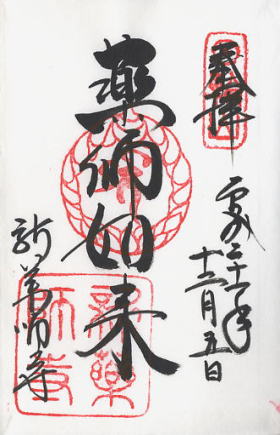 奉拝
平成二十一年
十二月五日
薬師如来
新薬師寺
新薬
師寺